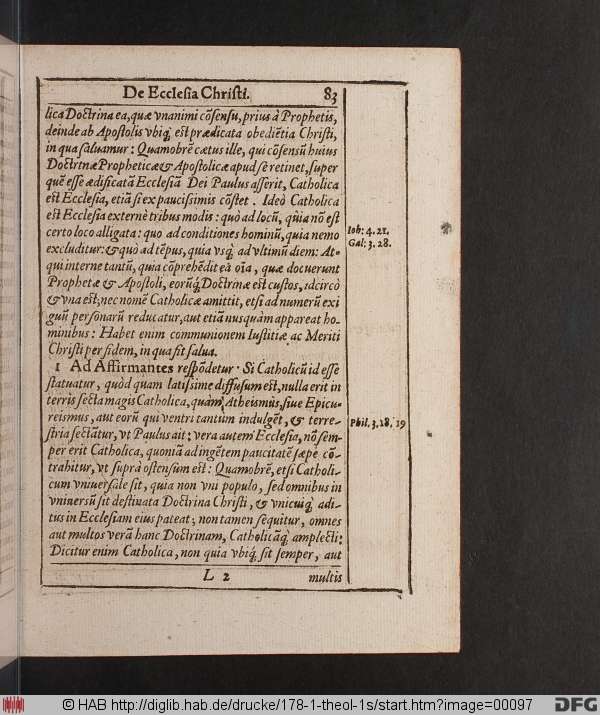 De Ecclesia Christi. 83
lica Doctrina ea, quæ vnanimi cõsensu, prius à Prophetis,
deinde ab Apostolis vbiq́; est prædicata obediẽtia Christi,
in qua saluamur: Quamobrẽ cætus ille, qui cõsensũ huius
Doctrinæ Propheticæ & Apostolicæ apud se retinet, super
quẽ esse ædificatã Ecclesiã Dei Paulus asserit, Catholica
est Ecclesia, etiã si ex paucissimis cõstet. Ideò Catholica
est Ecclesia externè tribus modis: quò ad locũ, quia nõ est
certo loco alligata: quo ad conditiones hominũ, quia nemo
Ioh: 4. 21.
excluditur: & quò ad tẽpus, quia vsq́; ad vltimũ diem: At-
Gal: 3. 28.
qui interne tantũ, quia cõprehẽdit eà oĩa, quæ docuerunt
Prophetæ & Apostoli, eorũq́; Doctrinæ est custos, idcircò
& vna est; nec nomẽ Catholicæ amittit, etsi ad numerũ exi
guũ personarũ reducatur, aut etiã nusquàm appareat ho-
minibus: Habet enim communionem Iustitiæ ac Meriti
Christi per fidem, in qua fit salua.
1 Ad Affirmantes respõdetur. Si Catholicũ id esse
statuatur, quòd quam latissime diffusum est, nulla erit in
terris secta magis Catholica, quàm Atheismus, siue Epicu-
reismus, aut eorũ qui ventri tantum indulgẽt, & terre-
Phil. 3. 18. 19
stria sectãtur, vt Paulus ait: vera autem Ecclesia, nõ sem-
per erit Catholica, quoniã ad ingẽtem paucitatẽ sæpe cõ-
trahitur, vt suprà ostensum est: Quamobrẽ, etsi Catholi-
cum vniuersale sit, quia non vni populo, sed omnibus in
vniuersũ sit destinata Doctrina Christi, & vnicuiq́; adi-
tus in Ecclesiam eius pateat; non tamen sequitur, omnes
aut multos verã hanc Doctrinam, Catholicãq́; amplecti:
Dicitur enim Catholica, non quia vbiq́; sit semper, aut
L 2 multis
© HAB http://diglib.hab.de/drucke/178-1-theol-1s/start.htm?image=00097 DFG